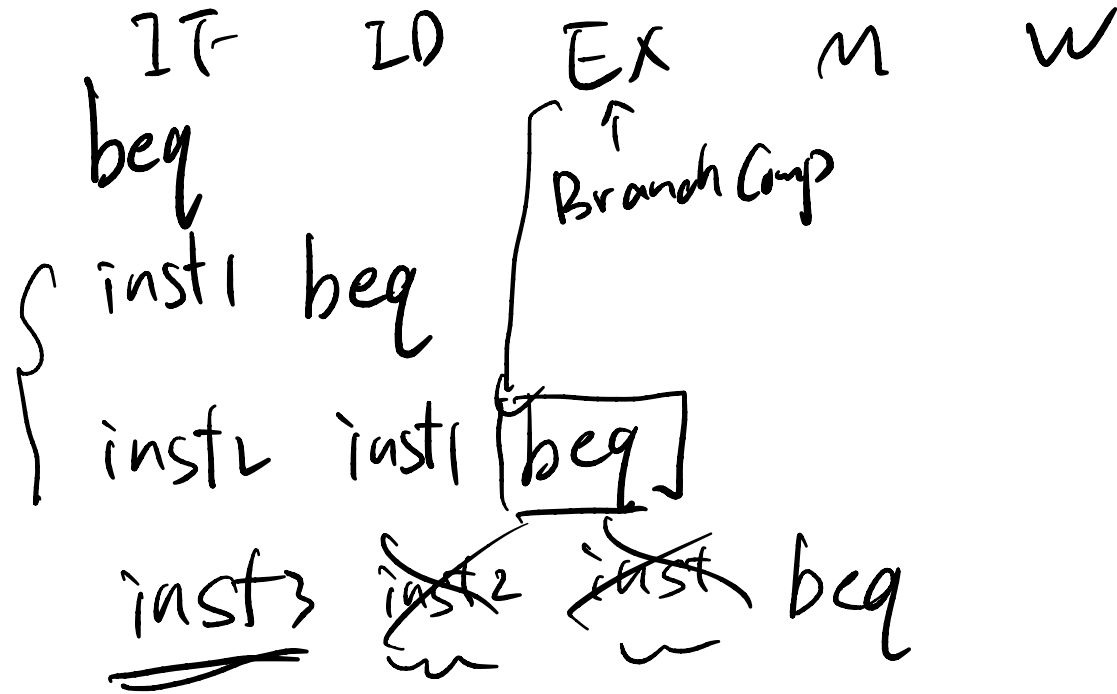 IF ID EX M W
beq
Branch Comp
inst1 beq
inst2 inst1 beq
inst3 inst2 inst beq